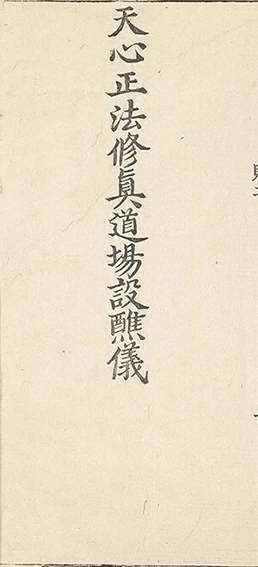 天心正法修眞道場設醮儀